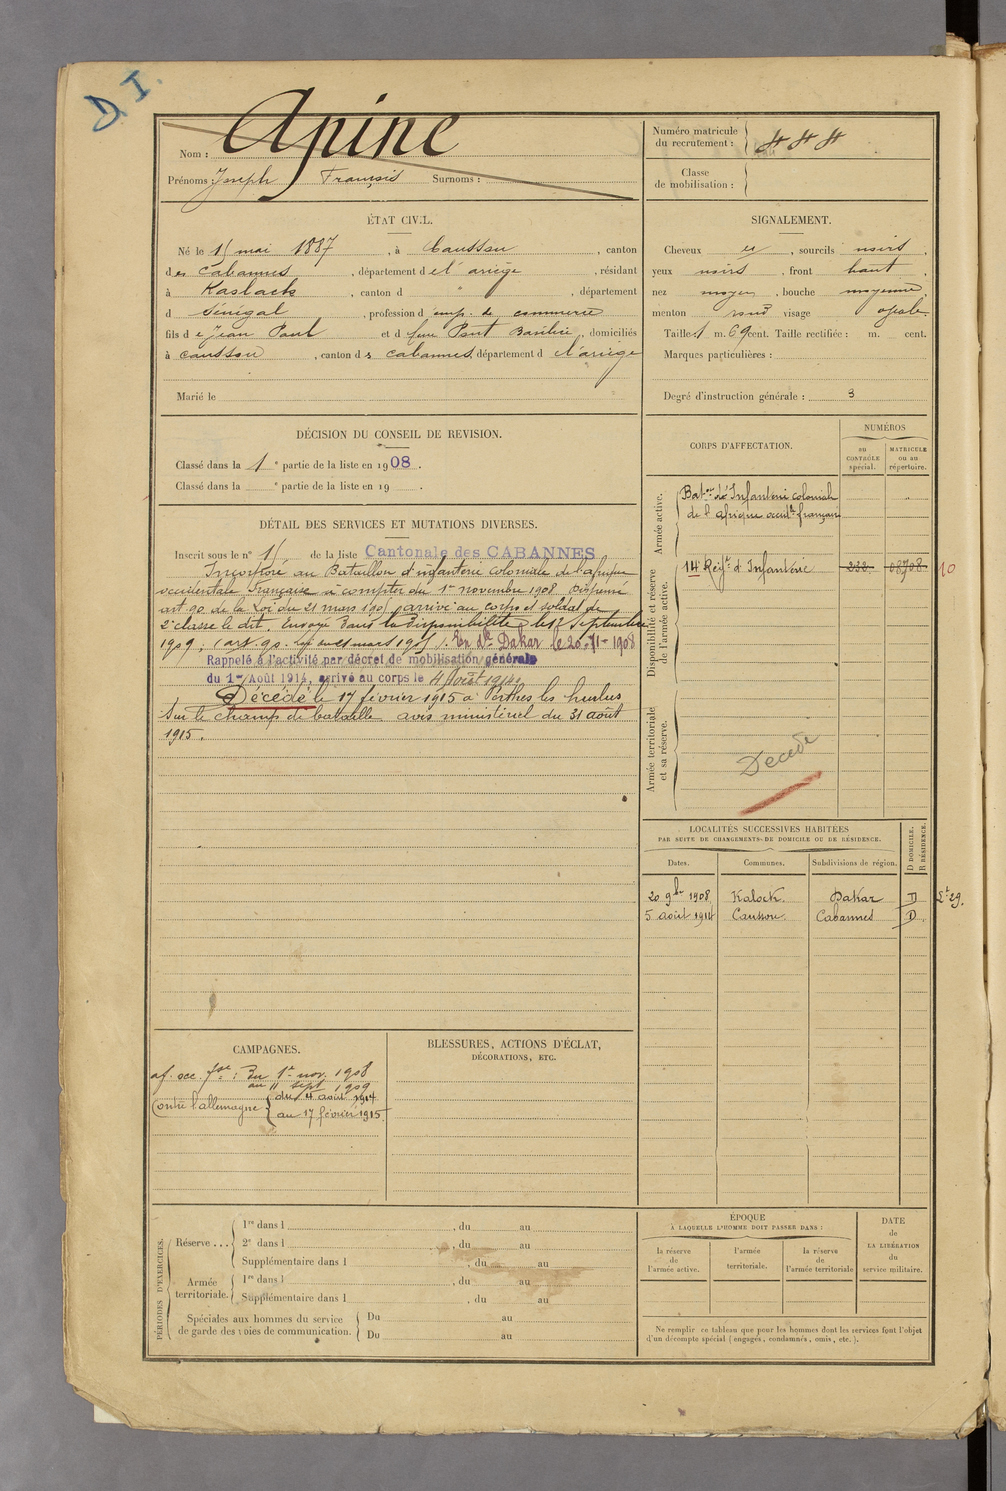 D. I.
Nom : Apine
Prénoms : Joseph François Surnoms :
Numéro matricule
du recrutement :
Classe
de mobilisation :
ÉTAT CIVIL.
Né le mai 1887, à Caussou, canton
des Cabannes, département de l'ariège, résidant
à Kaslack, canton d " , département
d Sénégal, profession d'emp. de commerce
fils de Jean Paul et d feue Pont Basilice, domiciliés
à caussou, canton des cabannes, département d l'ariège
Marié le
SIGNALEMENT.
Cheveux , sourcils noirs,
yeux noirs, front haut,
nez moyen, bouche moyenne,
menton rond visage
Taille 1 m. 69 cent. Taille rectifiée : m. cent.
Marques particulières :
Degré d'instruction générale : 3
DÉCISION DU CONSEIL DE REVISION.
Classé dans la 1e partie de la liste en 1908.
Classé dans la e partie de la liste en 19 .
DÉTAIL DES SERVICES ET MUTATIONS DIVERSES.
Inscrit sous le n° de la liste Cantonale des CABANNES
Incorporé au Bataillon d'infanterie coloniale de l'afrique
occidentale Française à compter du 1er novembre 1908. Dispensé
art. 90 de la Loi du 21 mars 1905 arrivé au corps et soldat de
2e classe le dit. Envoyé dans la Disponibilité le 12 Septembre
1909, (art. 90 mars 1905). En dce Dakar le 20-11-1908
Rappelé à l'activité par décret de mobilisation générale
du 1er Août 1914, arrivé au corps le 4 Août 1914.
Décédé le 17 février 1915 à Perthes les hurlus
Sur le champs de bataille avis ministériel du 31 août
1915.
CORPS D'AFFECTATION.
NUMÉROS
au
CONTRÔLE
spécial.
MATRICULE
ou au
répertoire.
Armée active.
Baton d'Infanterie coloniale
de l'afrique occidle française
Disponibilité et réserve
de l'armée active.
14 Regt d'Infanterie 232 08708 10
Armée territoriale
et sa réserve.
Décédé
LOCALITÉS SUCCESSIVES HABITÉES
PAR SUITE DE CHANGEMENTS DE DOMICILE OU DE RÉSIDENCE.
Dates. Communes. Subdivisions de région. D DOMICILE. R RÉSIDENCE.
20 9bre 1908 Kalock. Dakar
5 août 1914 Caussou. Cabannes D.
CAMPAGNES.
af. occ. fse : Du 1er nov. 1908
au 11 sept 1909
Contre l'allemagne du 4 août 1914
au 17 février 1915.
BLESSURES, ACTIONS D'ÉCLAT,
DÉCORATIONS, ETC.
PÉRIODES D'EXERCICES.
Réserve ...
1re dans l , du au
2e dans l , du au
Supplémentaire dans l , du au
Armée
territoriale.
1re dans l , du au
Supplémentaire dans l , du au
Spéciales aux hommes du service
de garde des voies de communication.
Du au
Du au
ÉPOQUE
À LAQUELLE L'HOMME DOIT PASSER DANS :
la réserve
de
l'armée active.
l'armée
territoriale.
la réserve
de
l'armée territoriale
DATE
de
LA LIBÉRATION
du
service militaire.
Ne remplir ce tableau que pour les hommes dont les services font l'objet
d'un décompte spécial (engagés, condamnés, omis, etc.).